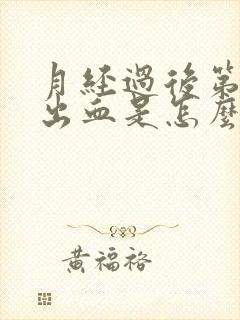 月经過後第
出血是怎麼
黃福裕